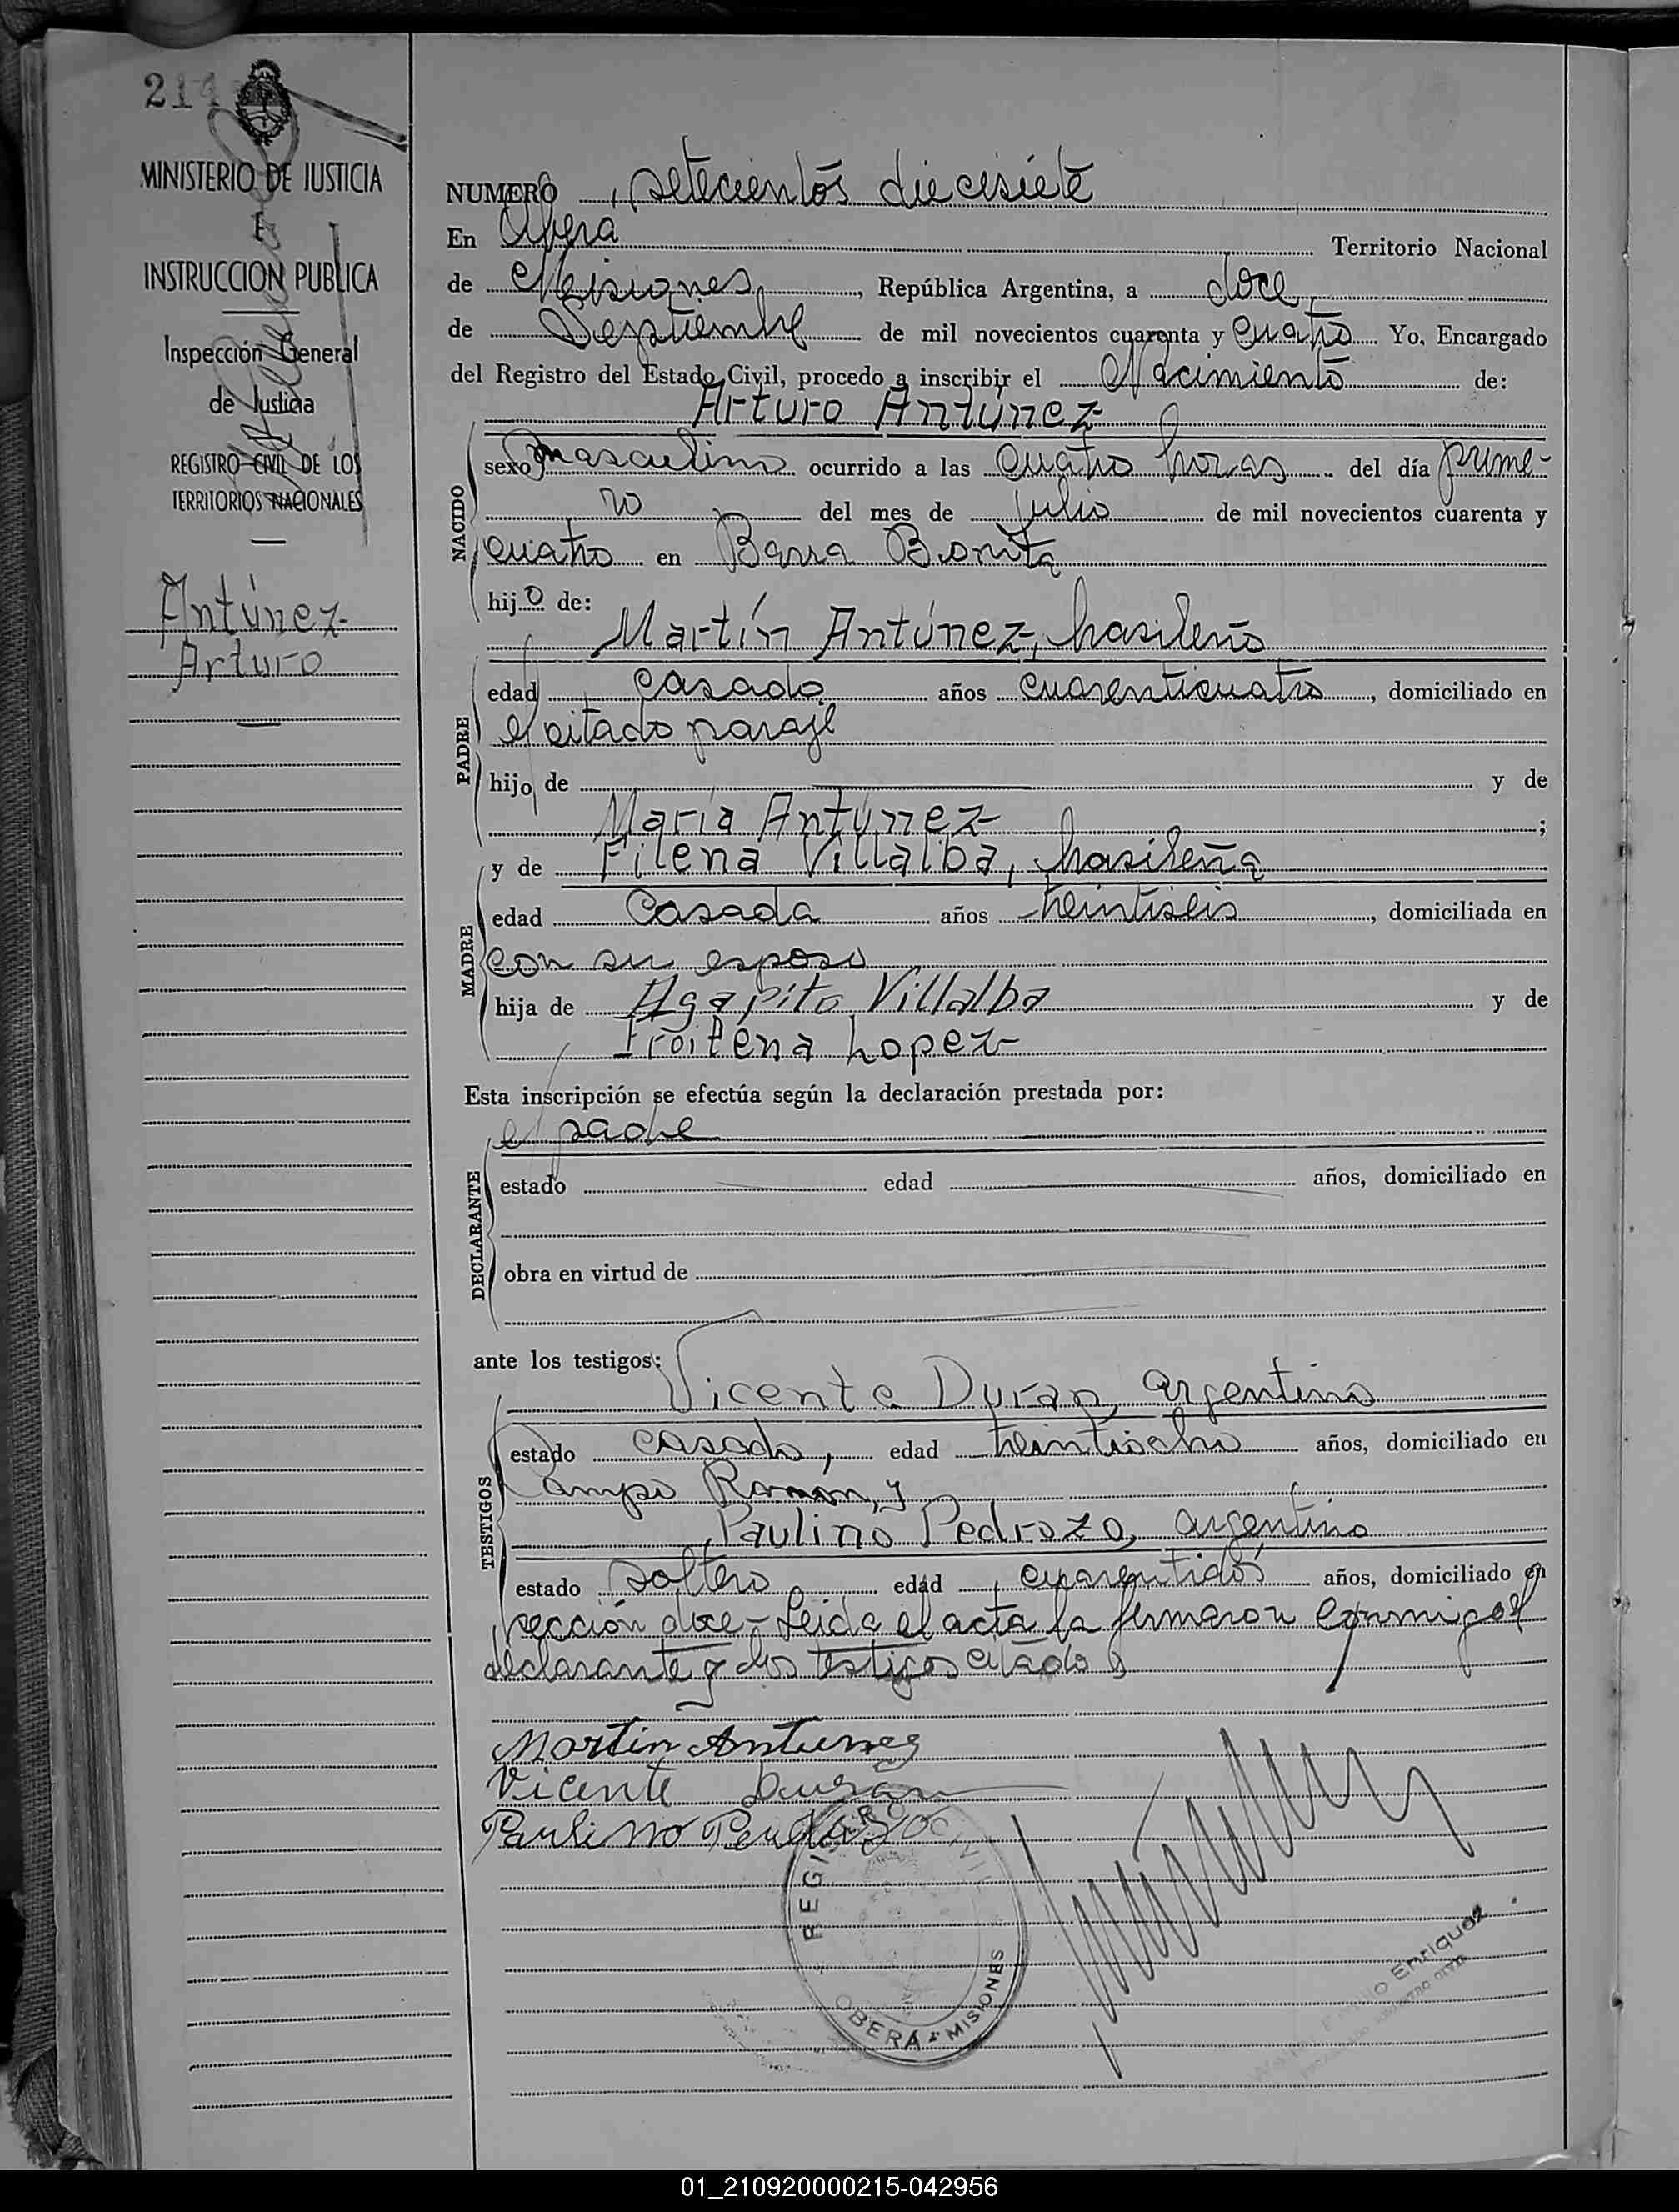 214
MINISTERIO DE JUSTICIA
E
INSTRUCCION PUBLICA
Inspección General
de Justicia
REGISTRO CIVIL DE LOS
TERRITORIOS NACIONALES
Antúnez
Arturo
NUMERO setecientos diecisiete
En Oberá Territorio Nacional
de Misiones, República Argentina, a doce
de Septiembre de mil novecientos cuarenta y cuatro Yo, Encargado
del Registro del Estado Civil, procedo a inscribir el Nacimiento de:
Arturo Antúnez
NACIDO
sexo masculino ocurrido a las cuatro horas del día prime-
ro del mes de julio de mil novecientos cuarenta y
cuatro en Barra Bonita
hijo de:
Martín Antúnez, brasileño
PADRE
edad casado años cuarenticuatro, domiciliado en
el citado paraje
hijo de y de
María Antúnez ;
MADRE
y de Filena Villalba, brasileña
edad Casada años treintiseis, domiciliada en
con su esposo
hija de Agapito Villalba y de
Froilena Lopez
Esta inscripción se efectúa según la declaración prestada por:
DECLARANTE
el padre
estado edad años, domiciliado en
obra en virtud de
ante los testigos:
TESTIGOS
Vicente Duran, argentino
estado casado, edad treintiocho años, domiciliado en
Campo Ramón, y
Paulino Pedrozo, argentino
estado soltero edad cuarentidós años, domiciliado en
sección doce - Leida el acta la firmaron conmigo el
declarante y los testigos citados
Martin Antunez
Vicente Durán
Paulino
REGISTRO CIVIL
OBERA - MISIONES
Enriquez
01_210920000215-042956